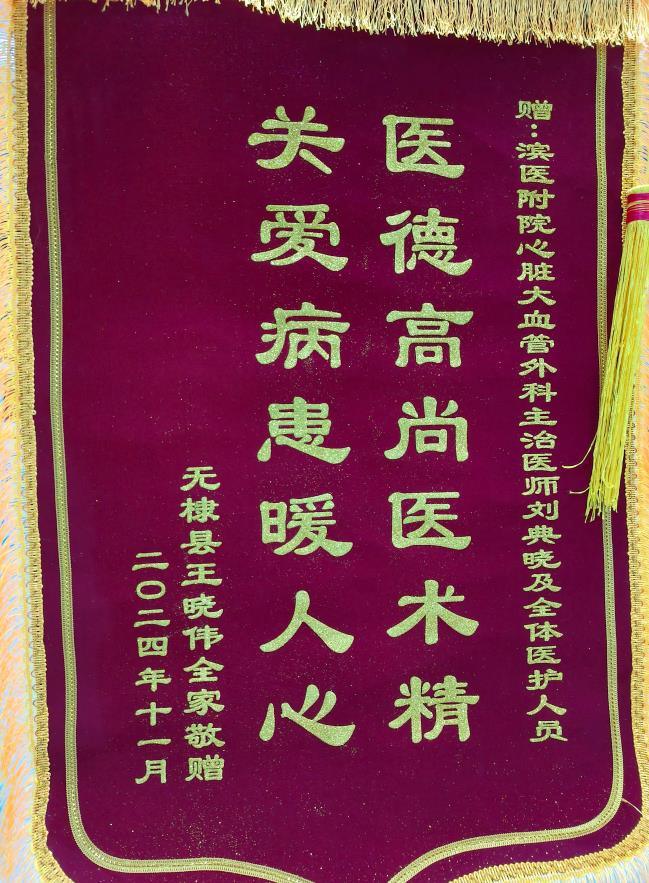 赠：滨医附院心脏大血管外科主治医师刘典晓及全体医护人员
医德高尚医术精
关爱病患暖人心
无棣县王晓伟全家敬赠
二〇二四年十一月